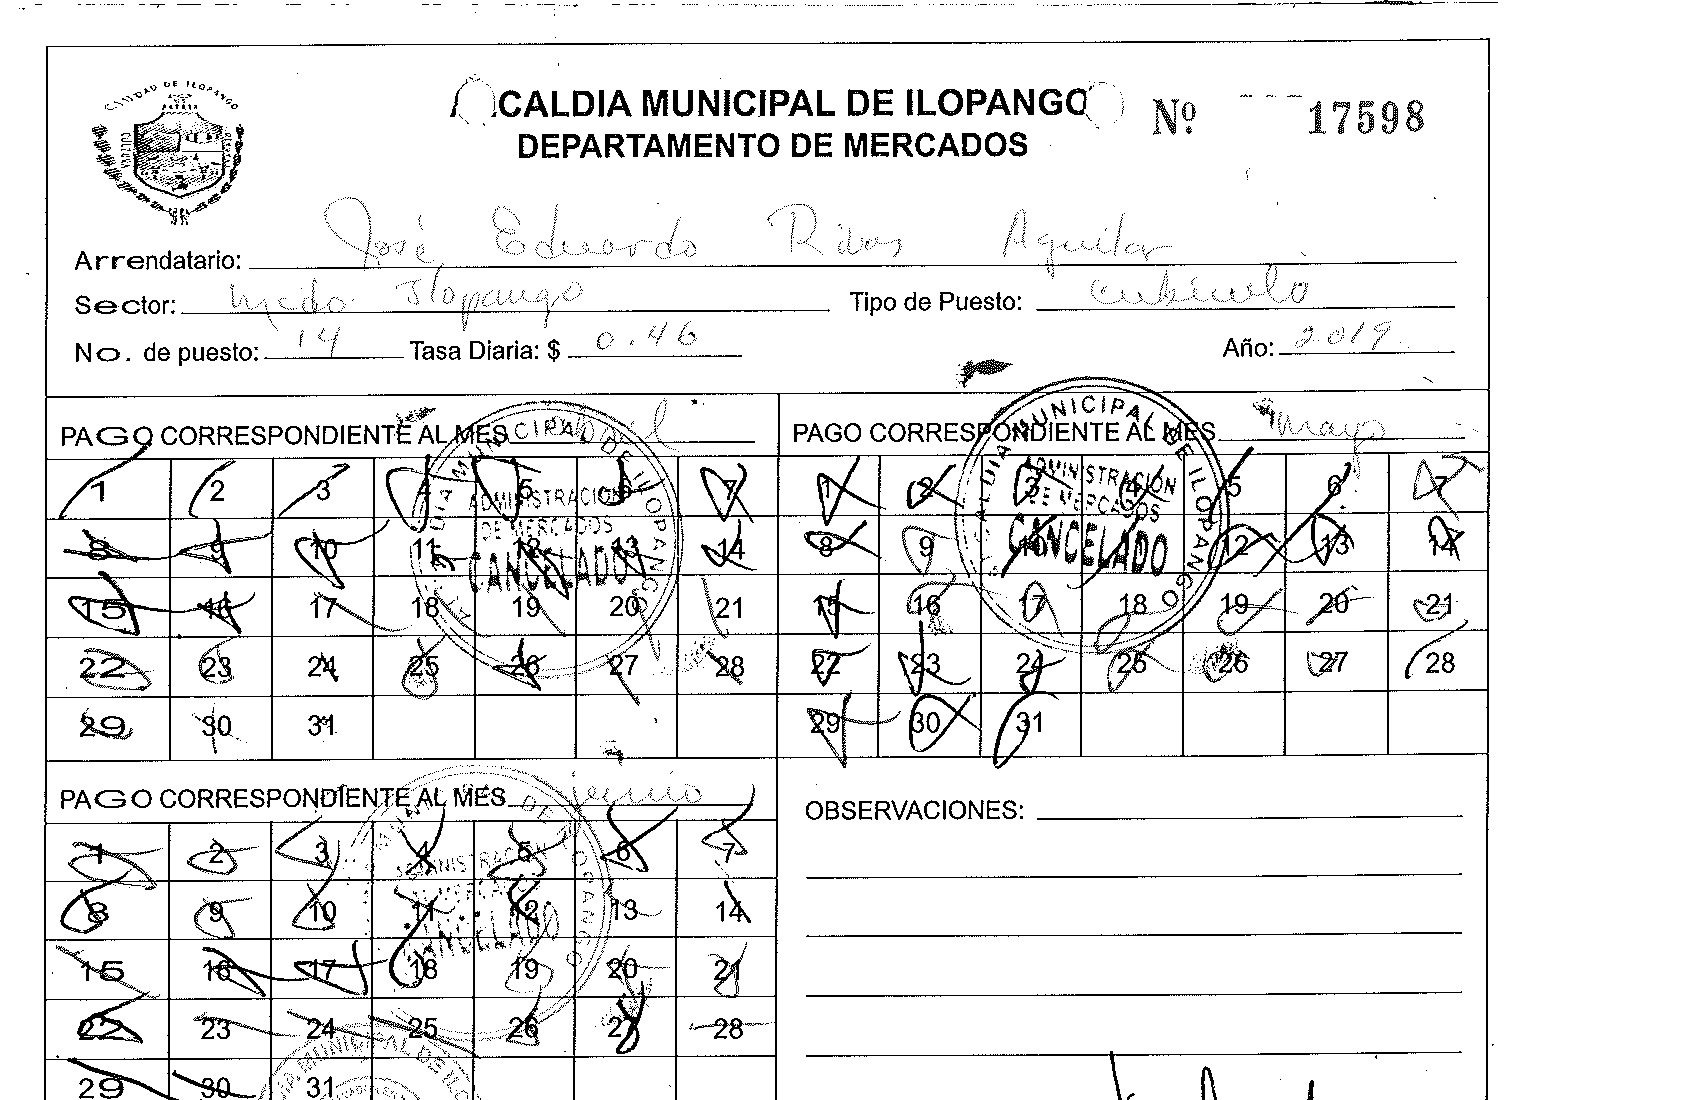 CIUDAD DE ILOPANGO
ALCALDIA MUNICIPAL DE ILOPANGO
Nº 17598
DEPARTAMENTO DE MERCADOS
Arrendatario: José Eduardo Rivas Aguilar
Sector: Mcdo. Ilopango Tipo de Puesto: cubiculo
No. de puesto: 14 Tasa Diaria: $ 0.46 Año: 2019
PAGO CORRESPONDIENTE AL MES
1 2 3 4 5 6 7
8 9 10 11 12 13 14
15 16 17 18 19 20 21
22 23 24 25 26 27 28
29 30 31
ALCALDIA MUNICIPAL DE ILOPANGO
ADMINISTRACION
DE MERCADOS
CANCELADO
PAGO CORRESPONDIENTE AL MES mayo
1 2 3 4 5 6 7
8 9 10 11 12 13 14
15 16 17 18 19 20 21
22 23 24 25 26 27 28
29 30 31
ALCALDIA MUNICIPAL DE ILOPANGO
ADMINISTRACION
DE MERCADOS
CANCELADO
PAGO CORRESPONDIENTE AL MES junio
1 2 3 4 5 6 7
8 9 10 11 12 13 14
15 16 17 18 19 20 21
22 23 24 25 26 27 28
29 30 31
MUNICIPAL DE ILOPANGO
ADMINISTRACION
DE MERCADOS
CANCELADO
MUNICIPAL DE ILO
OBSERVACIONES: